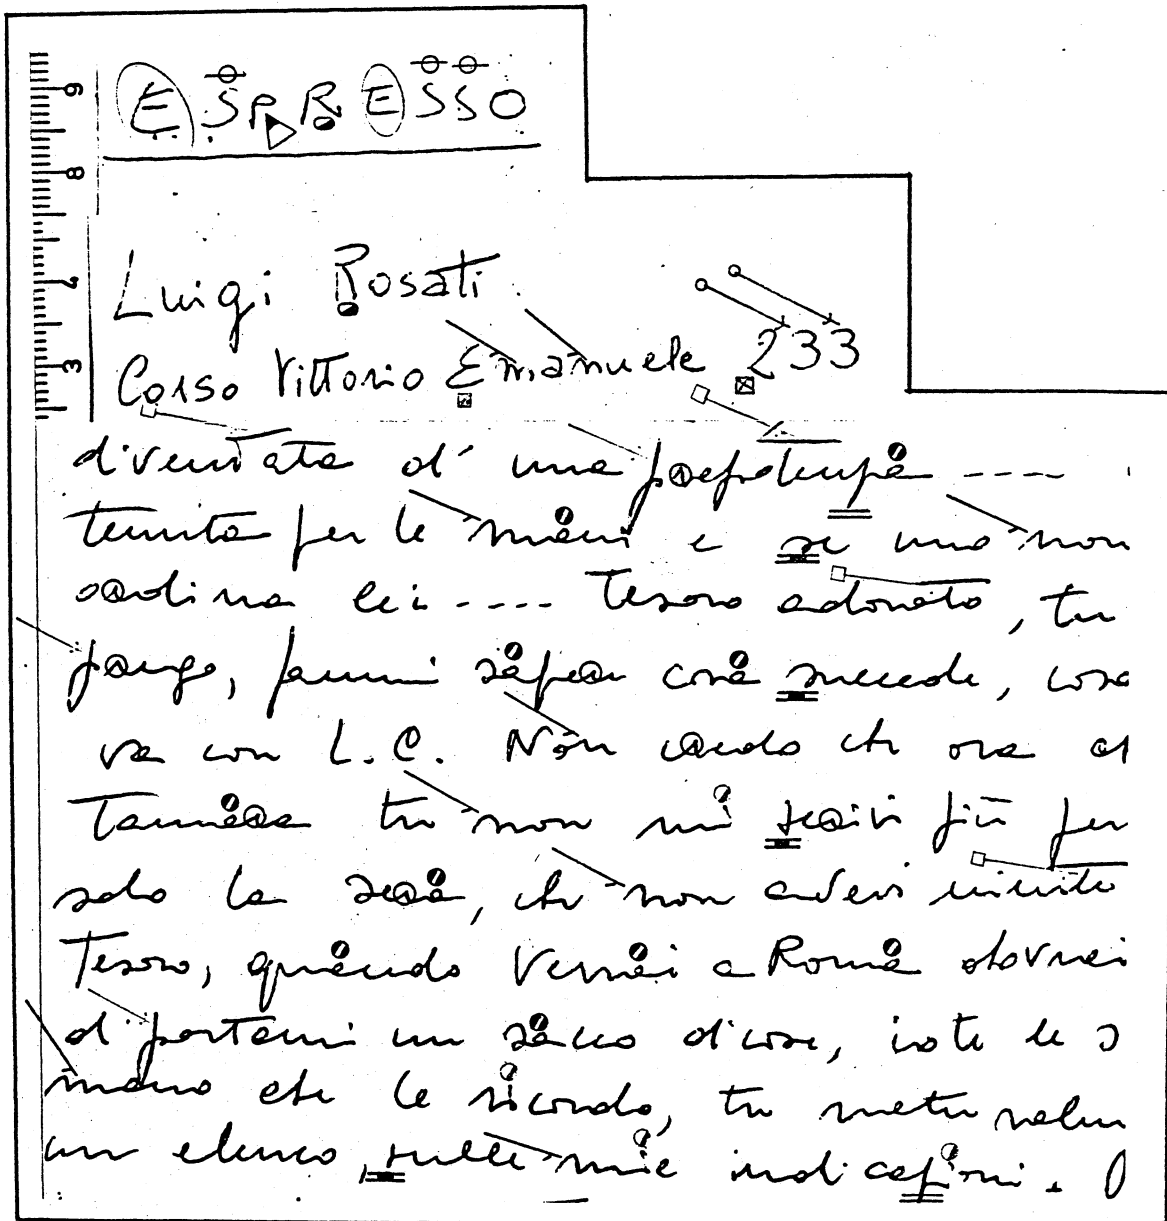 ESPRESSO
9
8
7
Luigi Rosati
Corso Vittorio Emanuele 233
diventata d' una prepotenza ----
tenuta per le mani e se una non
ordina lei ---- Tesoro adorato, tu
prego, fammi saper cosa succede, cosa
va con L.C. Non credo che ora
tu non mi scrivi più per
solo la sera, che non avevi
Tesoro, quando verrai a Roma dovrei
di portarmi un sacco di cose, io te le
mano che le ricordo, tu
un elenco, sulle mie indicazioni.